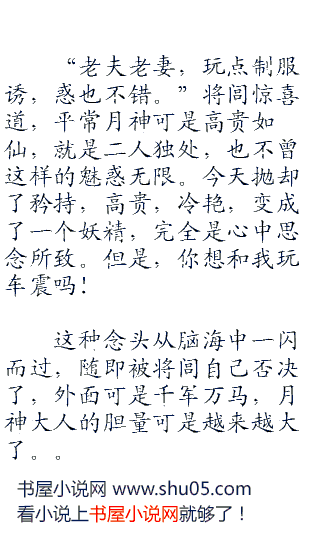 “老夫老妻，玩点制服
诱，惑也不错。”将闾惊喜
道，平常月神可是高贵如
仙，就是二人独处，也不曾
这样的魅惑无限。今天抛却
了矜持，高贵，冷艳，变成
了一个妖精，完全是心中思
念所致。但是，你想和我玩
车震吗！
这种念头从脑海中一闪
而过，随即被将闾自己否决
了，外面可是千军万马，月
神大人的胆量可是越来越大
了。。
书屋小说网 www.shu05.com
看小说上书屋小说网就够了！